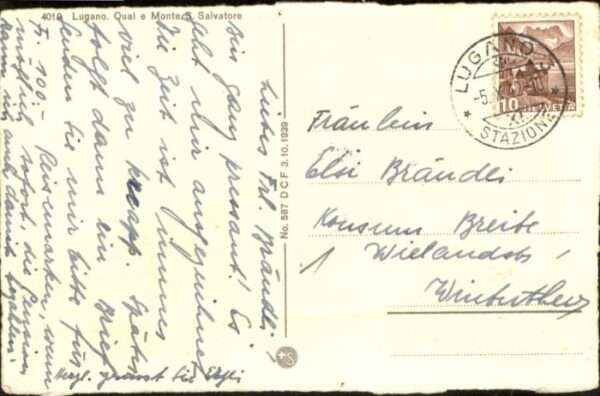 4019 Lugano. Quai e Monte S. Salvatore
Liebes Frl. Brändli
bin ganz pressant! Es
geht mir ausgezeichnet
die Zeit ist immer
viel zu knapp. Später
folgt dann ein Brief
Senden Sie mir bitte für
Fr. 100.- Reisemarken, wenn
möglich sofort, die Pension
kann ich auch damit
Herzl. grüsst Sie
No. 587 D C F 3.10.1939
LUGANO
STAZIONE
10 HELVETIA
Fräulein
Elsi Brändli
Konsum Breite
Wielandstr.
Winterthur